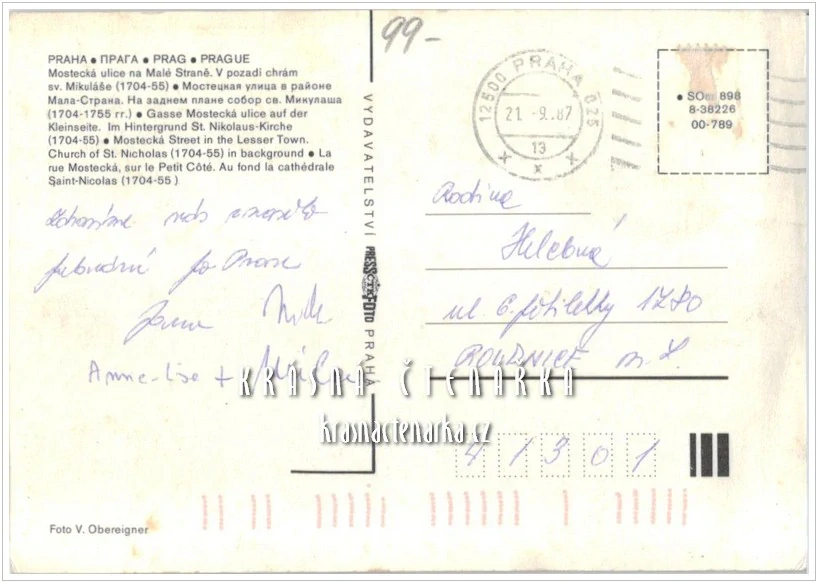 99-
PRAHA ● ПРАГА ● PRAG ● PRAGUE
Mostecká ulice na Malé Straně. V pozadí chrám
sv. Mikuláše (1704-55) ● Мостецкая улица в районе
Мала-Страна. На заднем плане собор св. Микулаша
(1704-1755 гг.) ● Gasse Mostecká ulice auf der
Kleinseite. Im Hintergrund St. Nikolaus-Kirche
(1704-55) ● Mostecká Street in the Lesser Town.
Church of St. Nicholas (1704-55) in background ● La
rue Mostecká, sur le Petit Côté. Au fond la cathédrale
Saint-Nicolas (1704-55)
po Praze
Jana
Anne-Lise +
Foto V. Obereigner
VYDAVATELSTVÍ PRESSFOTO PRAHA
12500 PRAHA 025
21. -9. 87
13
● SO 898
8-38226
00-789
Rodina
Helebná
ul. 6. pětiletky 1780
ROUDNICE n. L.
41301
KRÁSNÁ ČTENÁŘKA
krasnactenarka.cz